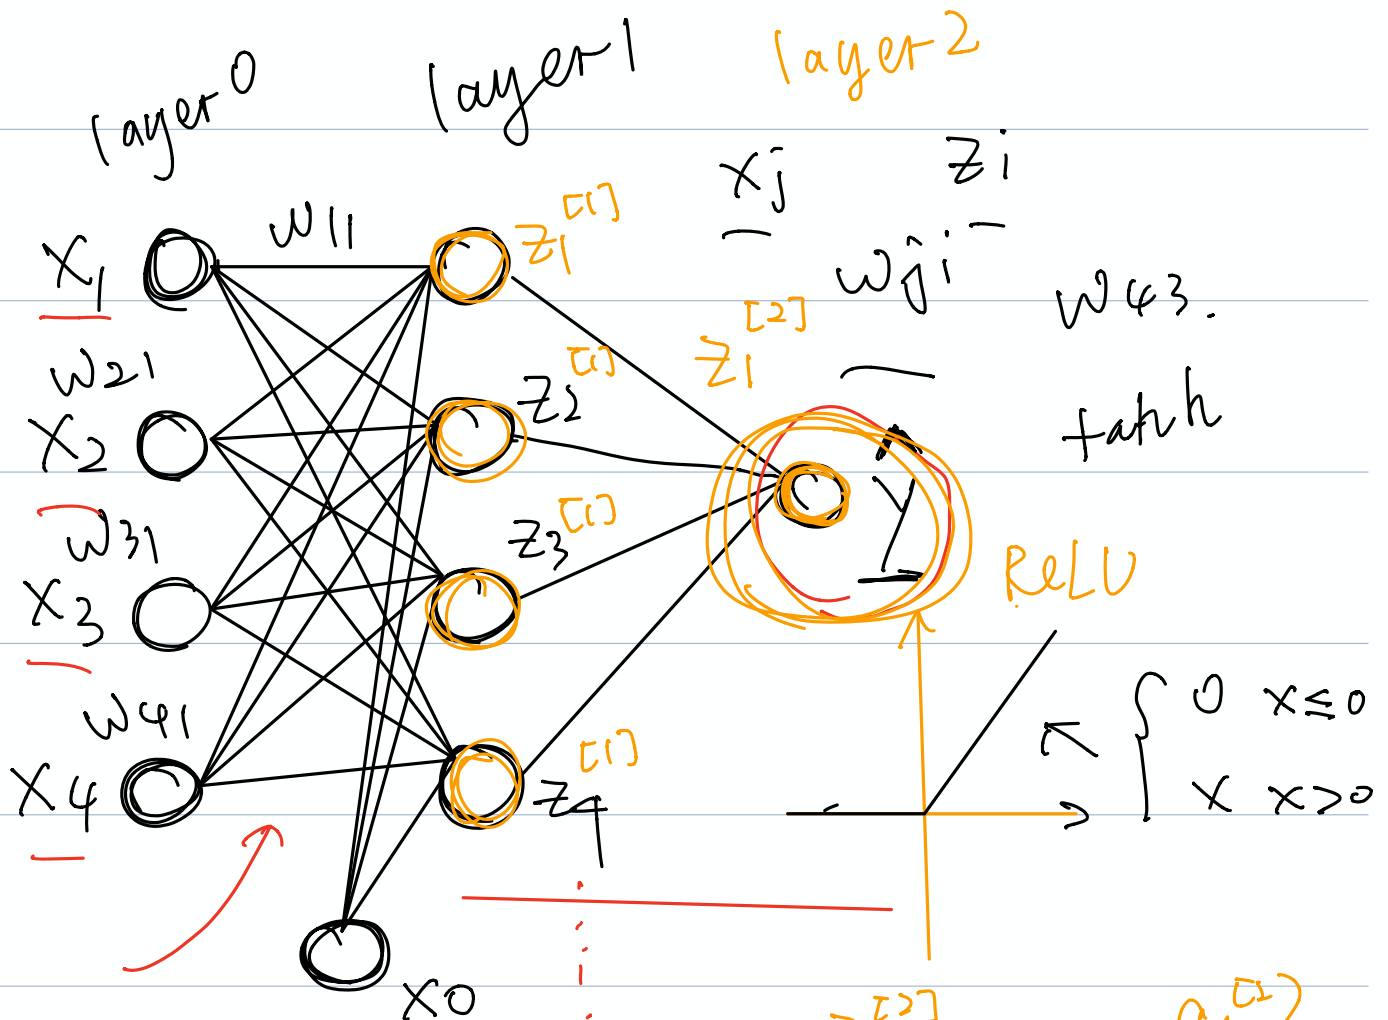 layer0
layer1
layer2
xj
zi
wji
w43.
tanh
x1
w11
z1[1]
w21
x2
z2[1]
z1[2]
w31
x3
z3[1]
y
ReLU
w41
x4
z4[1]
0 x≤0
x x>0
x0
[2]
a[1]